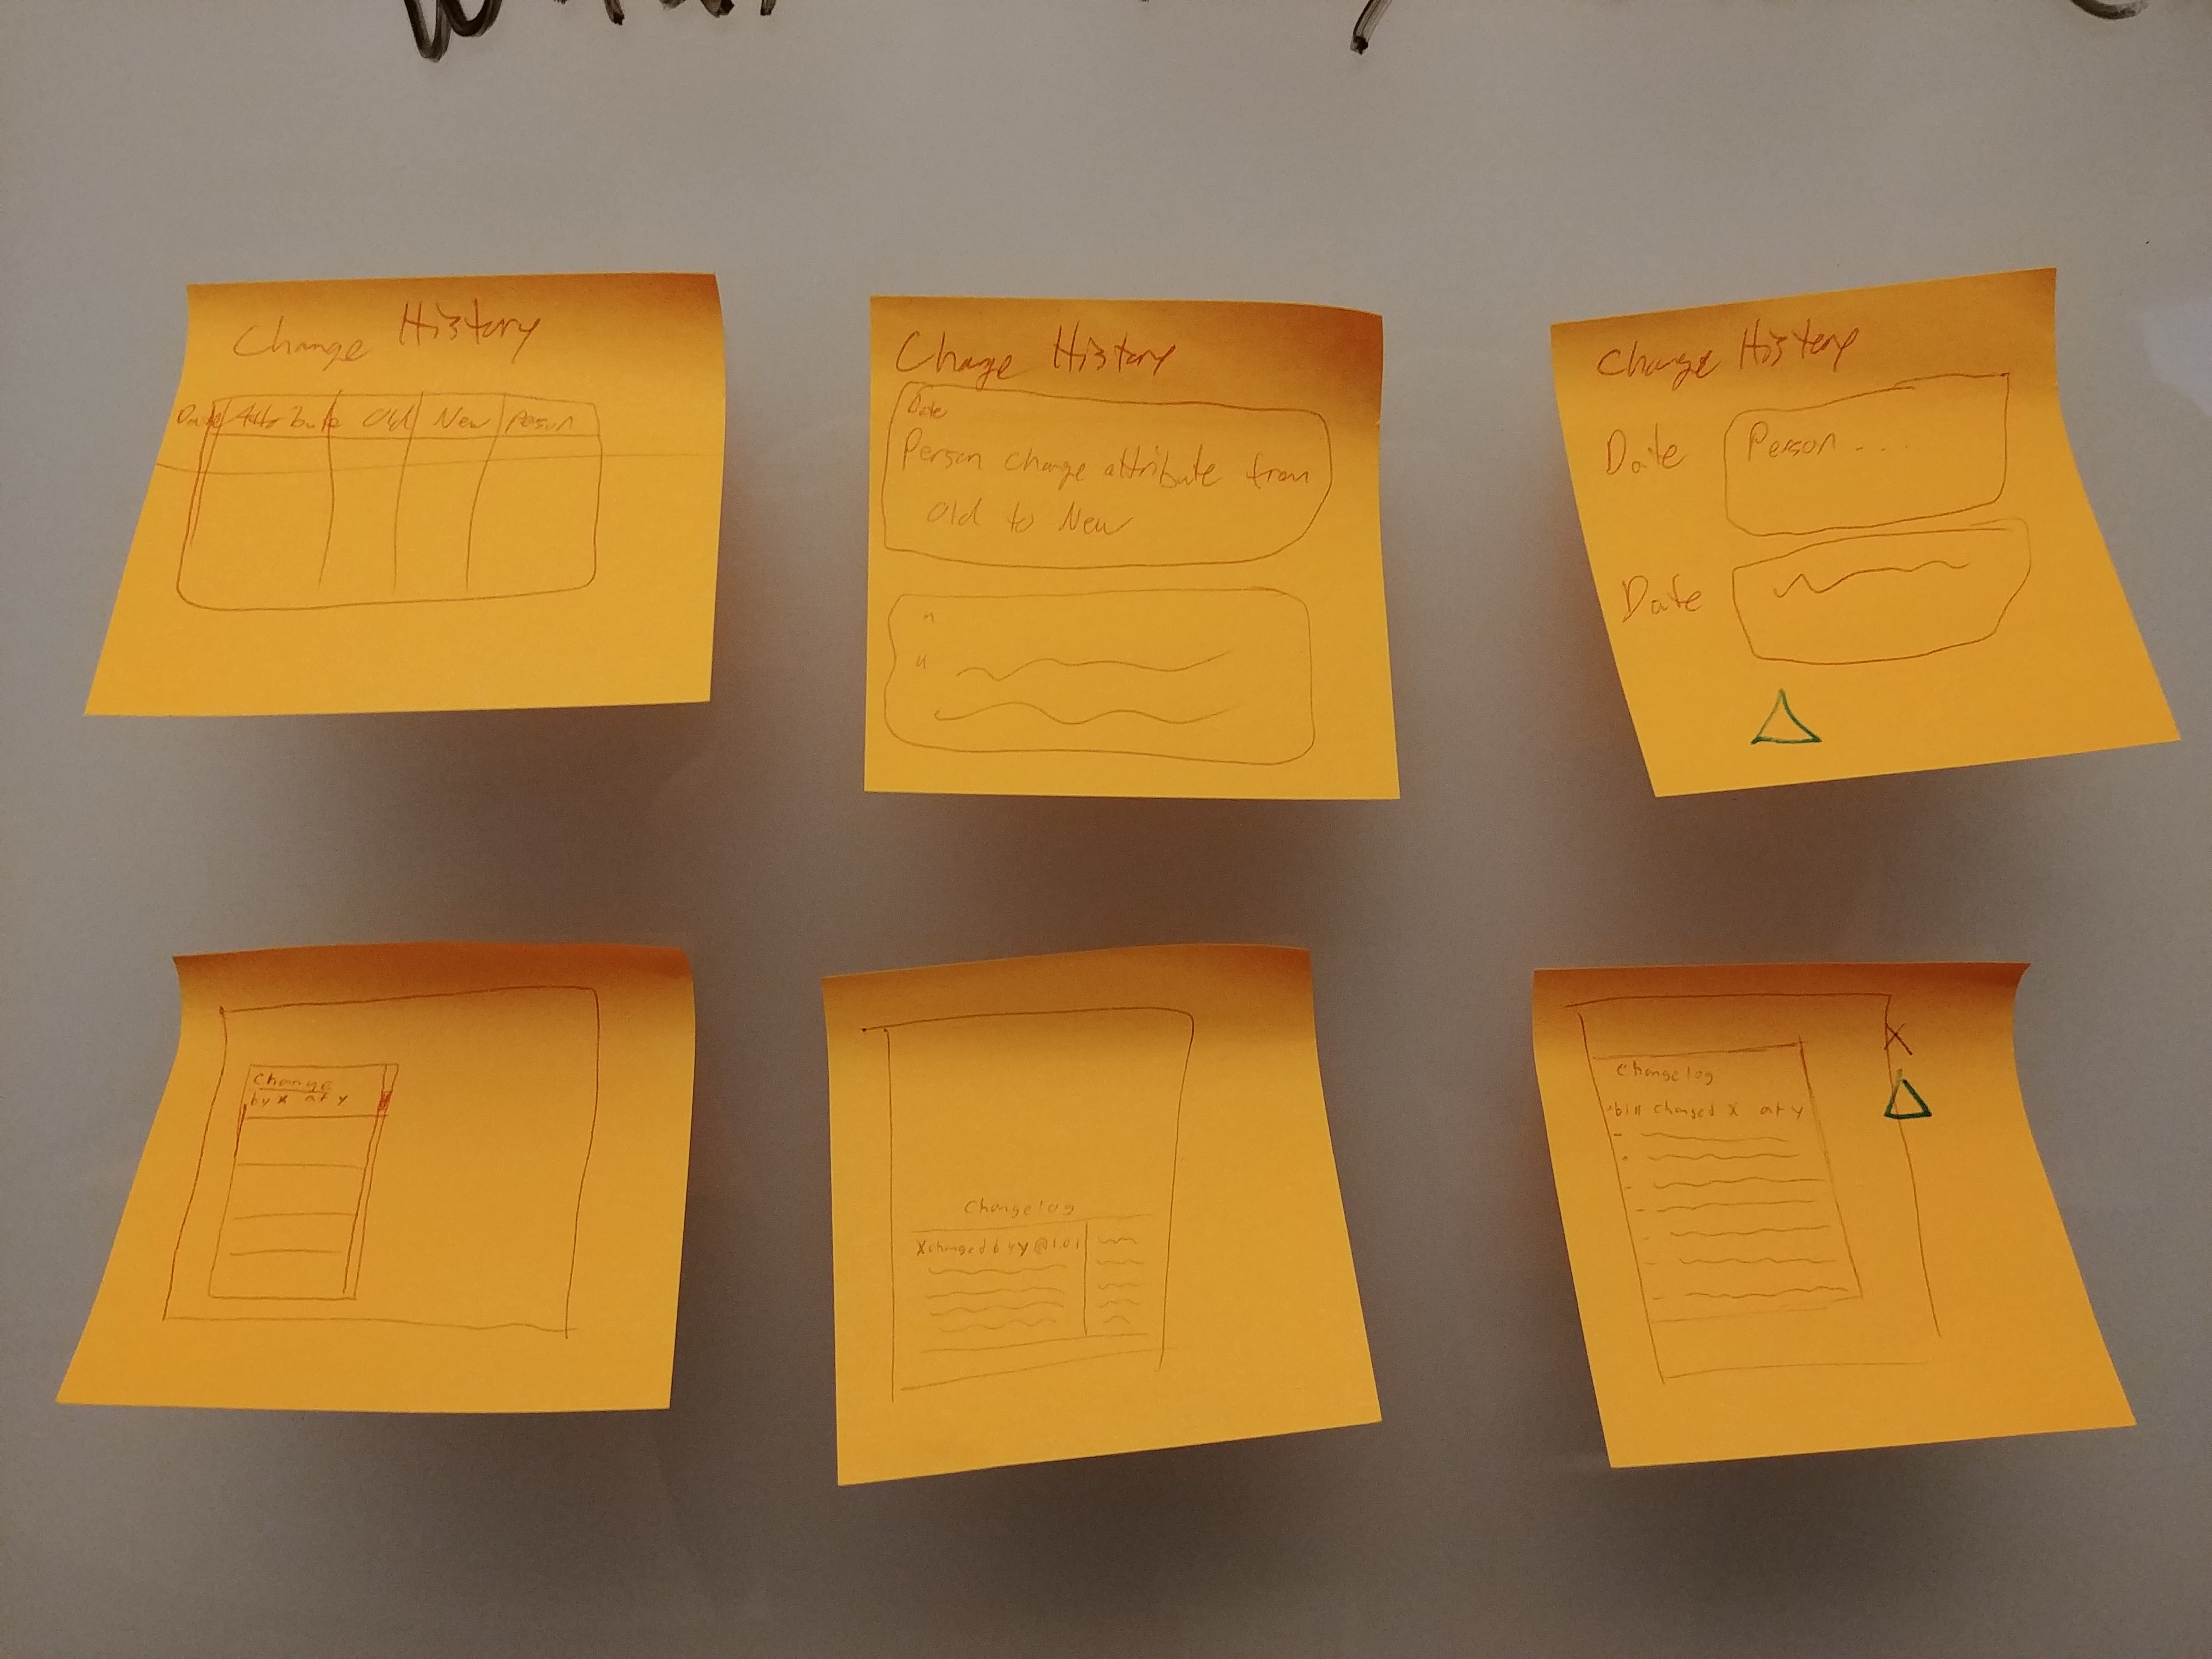 Change History
Date Attribute Old New Person
Change History
Date
Person change attribute from
Old to New
"
"
Change History
Date Person - - -
Date
Change
by x at y
Changelog
X changed by y @ 1.01
X
Changelog
bill changed X at y